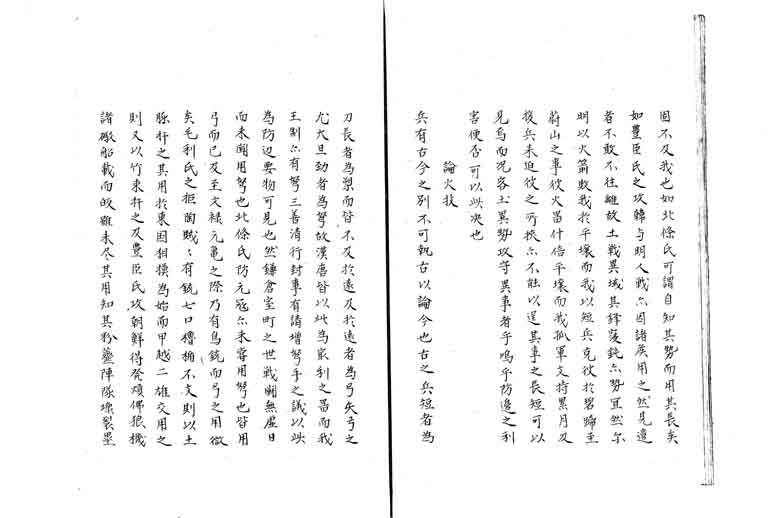 固不及我也如北條氏可謂自知其勢而用其長矣
如豐臣氏之攻韓与明人戰亦因諸侯用之然見遣
者不敢不往離故土戰異域其鋒蔆鈍亦勢宜然尔
明以火箭敗我於平壤而我以短兵克彼於碧蹄至
蔚山之事彼火器什倍平壤而我孤軍支持累月及
後兵来迫彼之所挾亦不能以逞其事之長短可以
見焉而况客主異勢攻守異事者乎嗚乎防邊之利
害便否可以此决也
論火技
兵有古今之別不可執古以論今也古之兵短者為
刀長者為槊而皆不及於遠及於遠者為弓矢弓之
尤大且劲者為弩故漢唐皆以此為最利之器而我
王制亦有弩三善清行封事有請增弩手之議以此
為防辺要物可見也然鎌倉室町之世戰鬪無虚日
而未聞用弩也北條氏防元寇亦未審用弩也皆用
弓而已及至文禄元亀之際乃有鳥銃而弓之用微
矣毛利氏之拒陶賊賊有銃七口櫓楯不支則以土
豚扞之其用於東国相摸為始而甲越二雄交用之
則又以竹束扞之及豊臣氏攻朝鮮得発熕佛狼機
諸礮船載而皈雖未尽其用知其粉虀陣隊壞裂塁